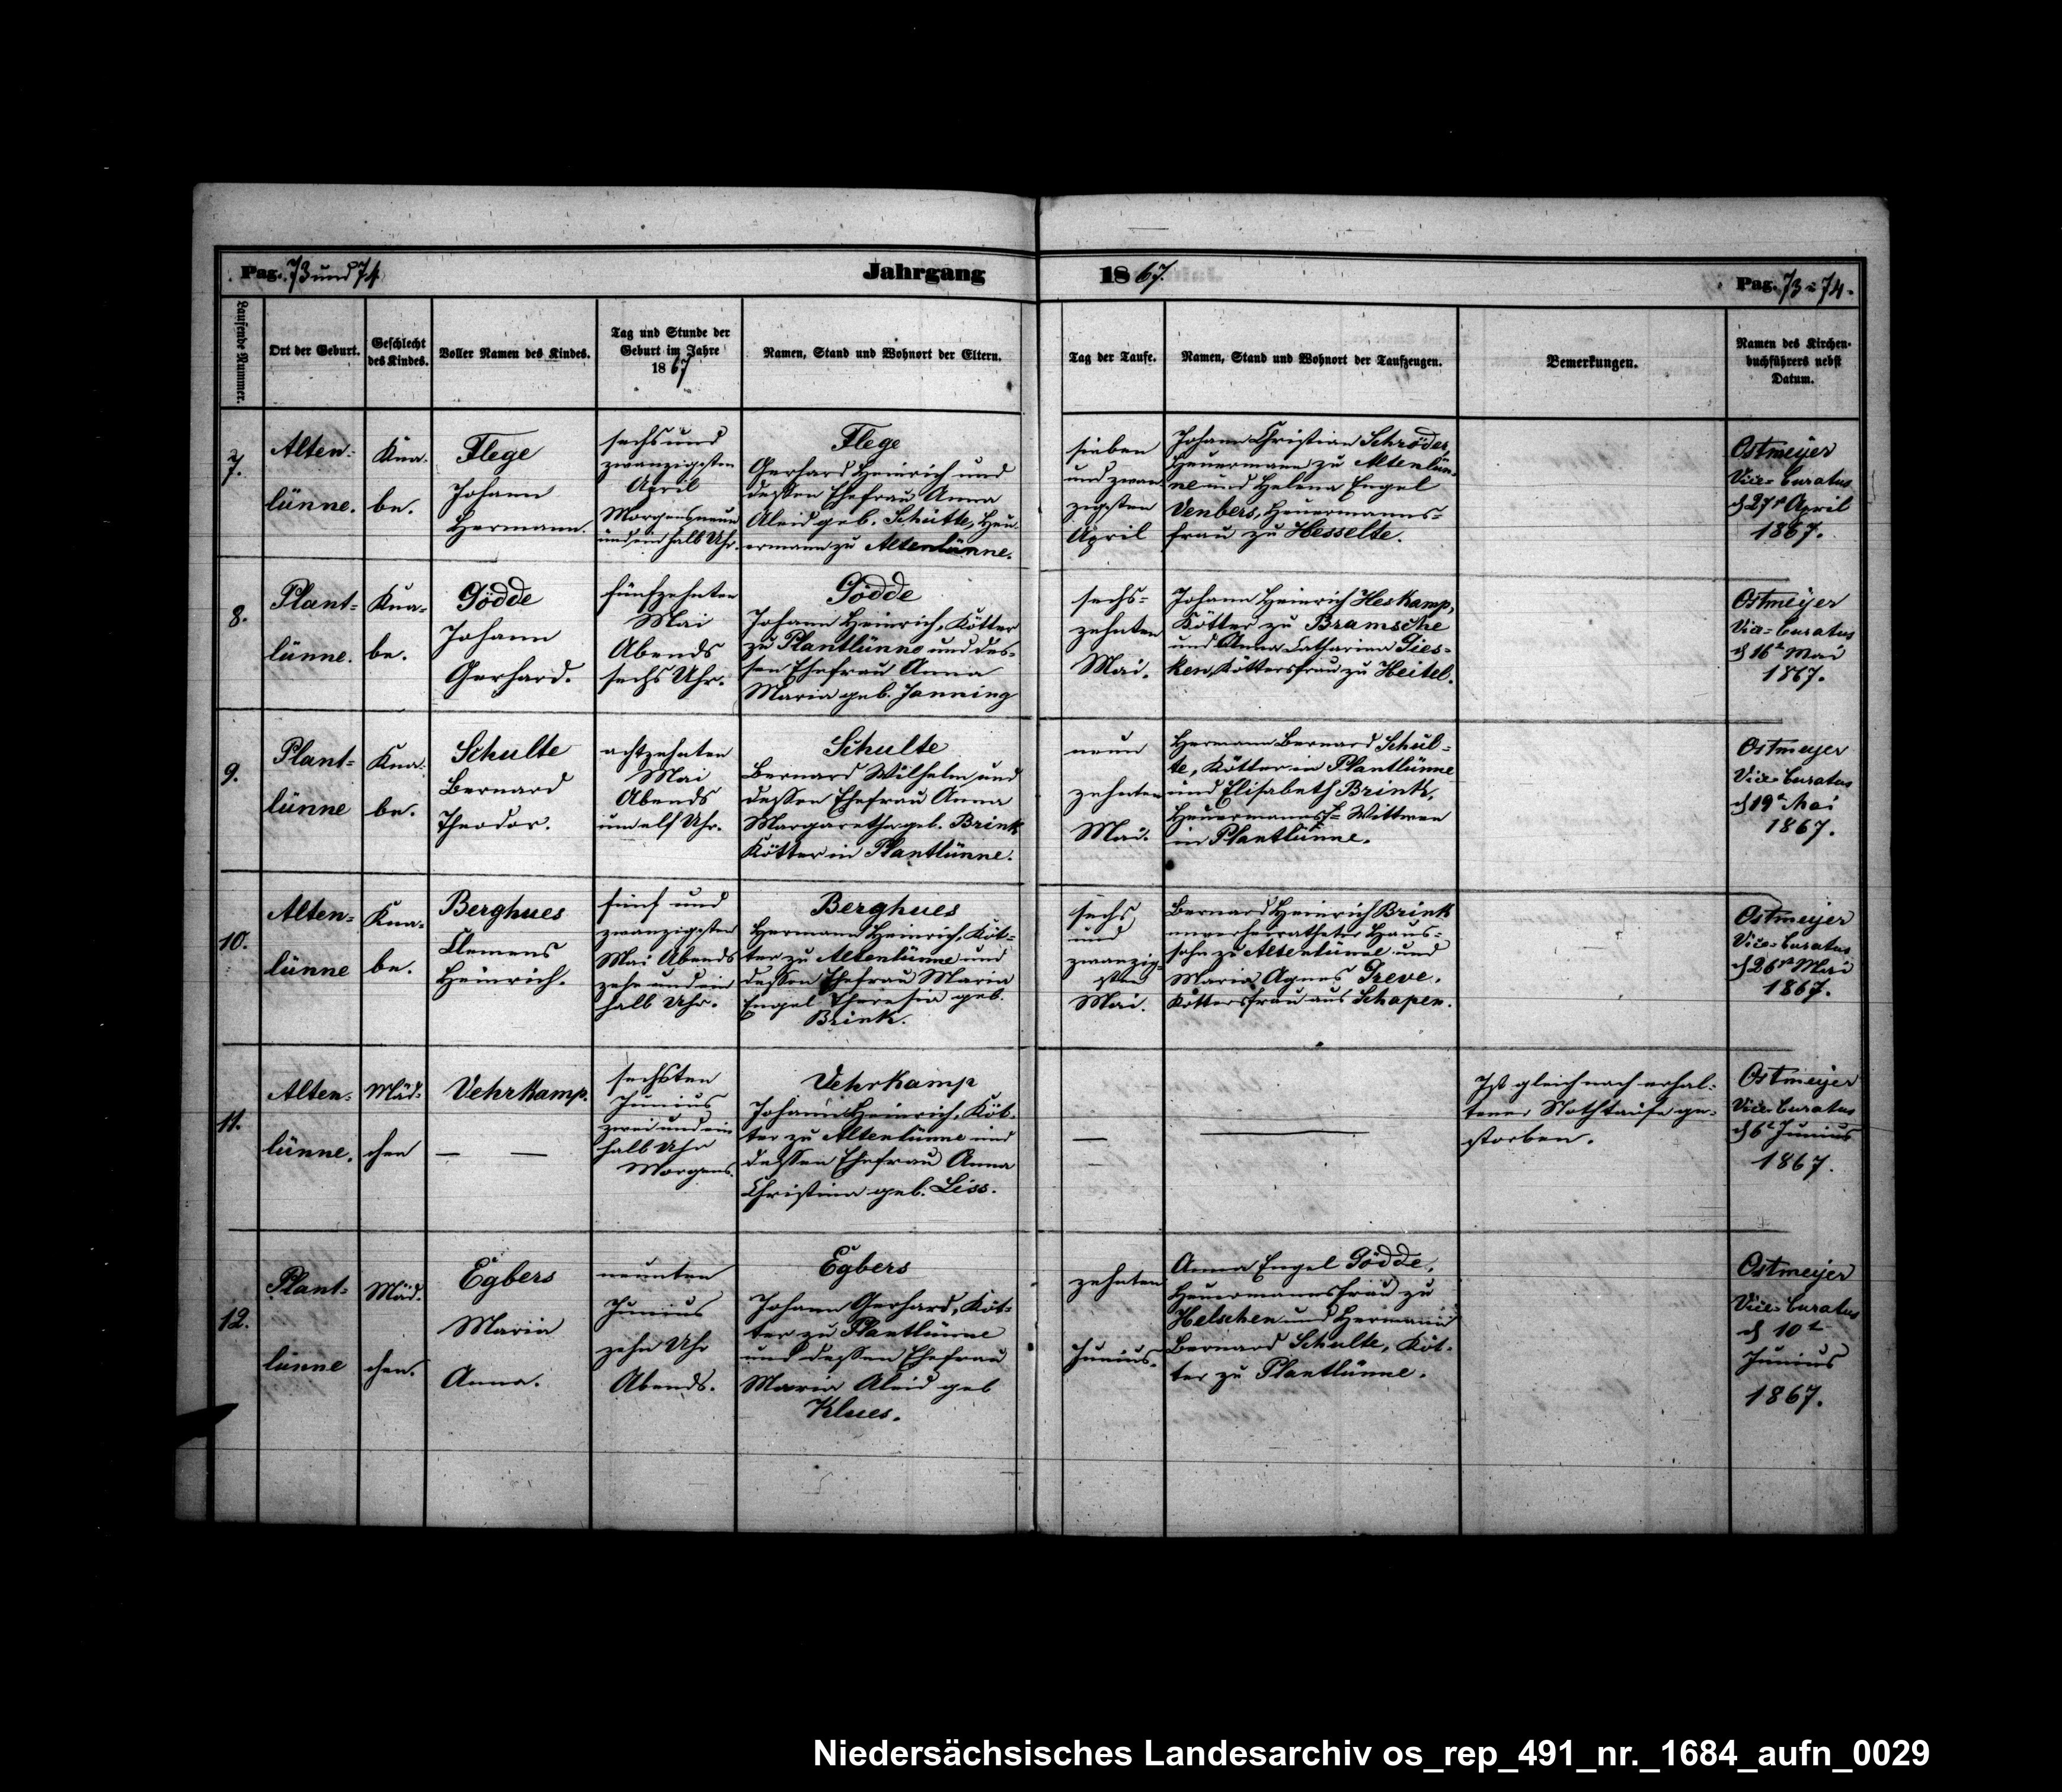 Pag. 73 und 74
Jahrgang
1867.
Pag. 73 u 74.
Laufende Nummer.
Ort der Geburt.
Geschlecht
des Kindes.
Voller Namen des Kindes.
Tag und Stunde der
Geburt im Jahre
1867
Namen, Stand und Wohnort der Eltern.
Tag der Taufe.
Namen, Stand und Wohnort der Taufzeugen.
Bemerkungen.
Namen des Kirchen-
buchführers nebst
Datum.
7.
Alten-
lünne.
Kna-
be.
Flege
Johann
Hermann.
sechs und
zwanzigsten
April
Morgens neun
und ein halb Uhr.
Flege
Gerhard Heinrich und
dessen Ehefrau Anna
Aleid geb. Schütte, Heu-
ermann zu Altenlünne.
sieben
und zwan
zigsten
April
Johann Christian Schröder,
Heuermann zu Altenlün-
ne und Helena Engel
Venbers, Heuermanns-
frau zu Hesselte.
Ostmeyer
Vice-Curatus
d 27st April
1867.
8.
Plant-
lünne.
Kna-
be.
Gödde
Johann
Gerhard.
fünfzehnten
Mai
Abends
sechs Uhr.
Gödde
Johann Heinrich, Kötter
zu Plantlünne und des-
sen Ehefrau Anna
Maria geb. Janning
sechs-
zehnten
Mai.
Johann Heinrich Heskamp,
Kötter zu Bramsche
und Anna Catharina Gies-
ken, Köttersfrau zu Heitel.
Ostmeyer
Vice-Curatus
d 16t Mai
1867.
9.
Plant-
lünne
Kna-
be.
Schulte
Bernard
Theodor.
achtzehnten
Mai
Abends
um elf Uhr.
Schulte
Bernard Wilhelm und
dessen Ehefrau Anna
Margaretha geb. Brink
Kötter in Plantlünne.
neun
zehnten
Mai.
Hermann Bernard Schul-
te, Kötter in Plantlünne
und Elisabeth Brink,
Heuermanns- Wittwen
in Plantlünne.
Ostmeyer
Vice-Curatus
d 19t Mai
1867.
10.
Alten-
lünne
Kna-
be.
Berghues
Clemens
Heinrich.
fünf und
zwanzigsten
Mai Abends
zehn und ein
halb Uhr.
Berghues
Hermann Heinrich, Köt-
ter zu Altenlünne und
dessen Ehefrau Maria
Engel Theresia geb.
Brink.
sechs
und
zwanzig-
sten
Mai.
Bernard Heinrich Brink
unverheiratheter Haus-
sohn zu Altenlünne und
Maria Agnes Greve,
Köttersfrau aus Schapen.
Ostmeyer
Vice-Curatus
d 26st Mai
1867.
11.
Alten-
lünne.
Mäd-
chen
Vehrkamp.
— —
sechsten
Junius
zwei und ein
halb Uhr
Morgens.
Vehrkamp
Johann Heinrich, Köt-
ter zu Altenlünne und
dessen Ehefrau Anna
Christina geb. Liss.
—
—
Ist gleich nach erhal-
tener Nothtaufe ge-
storben.
Ostmeyer
Vice-Curatus
d 6t Junius
1867.
12.
Plant-
lünne
Mäd-
chen.
Egbers
Maria
Anna.
neunten
Junius
zehn Uhr
Abends.
Egbers
Johann Gerhard, Köt-
ter zu Plantlünne
und dessen Ehefrau
Maria Aleid geb
Klues.
zehnten
Junius.
Anna Engel Gödde,
Heuermannsfrau zu
Helschen und Hermann
Bernard Schulte, Köt-
ter zu Plantlünne.
Ostmeyer
Vice-Curatus
d 10t
Junius
1867.
Niedersächsisches Landesarchiv os_rep_491_nr._1684_aufn_0029